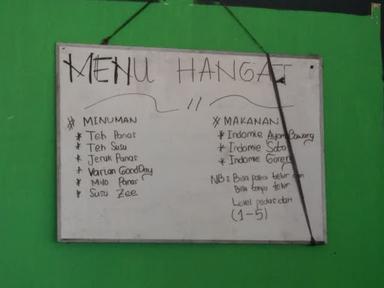 MENU HANGAT
# MINUMAN
* Teh Panas
* Teh Susu
* Jeruk Panas
* Varian GoodDay
* Milo Panas
* Susu Zee
# MAKANAN
* Indomie Ayam Bawang
* Indomie Soto
* Indomie Goreng
NB : Bisa pakai telur dan
Bisa tanpa telur
Level pedas dari
(1-5)